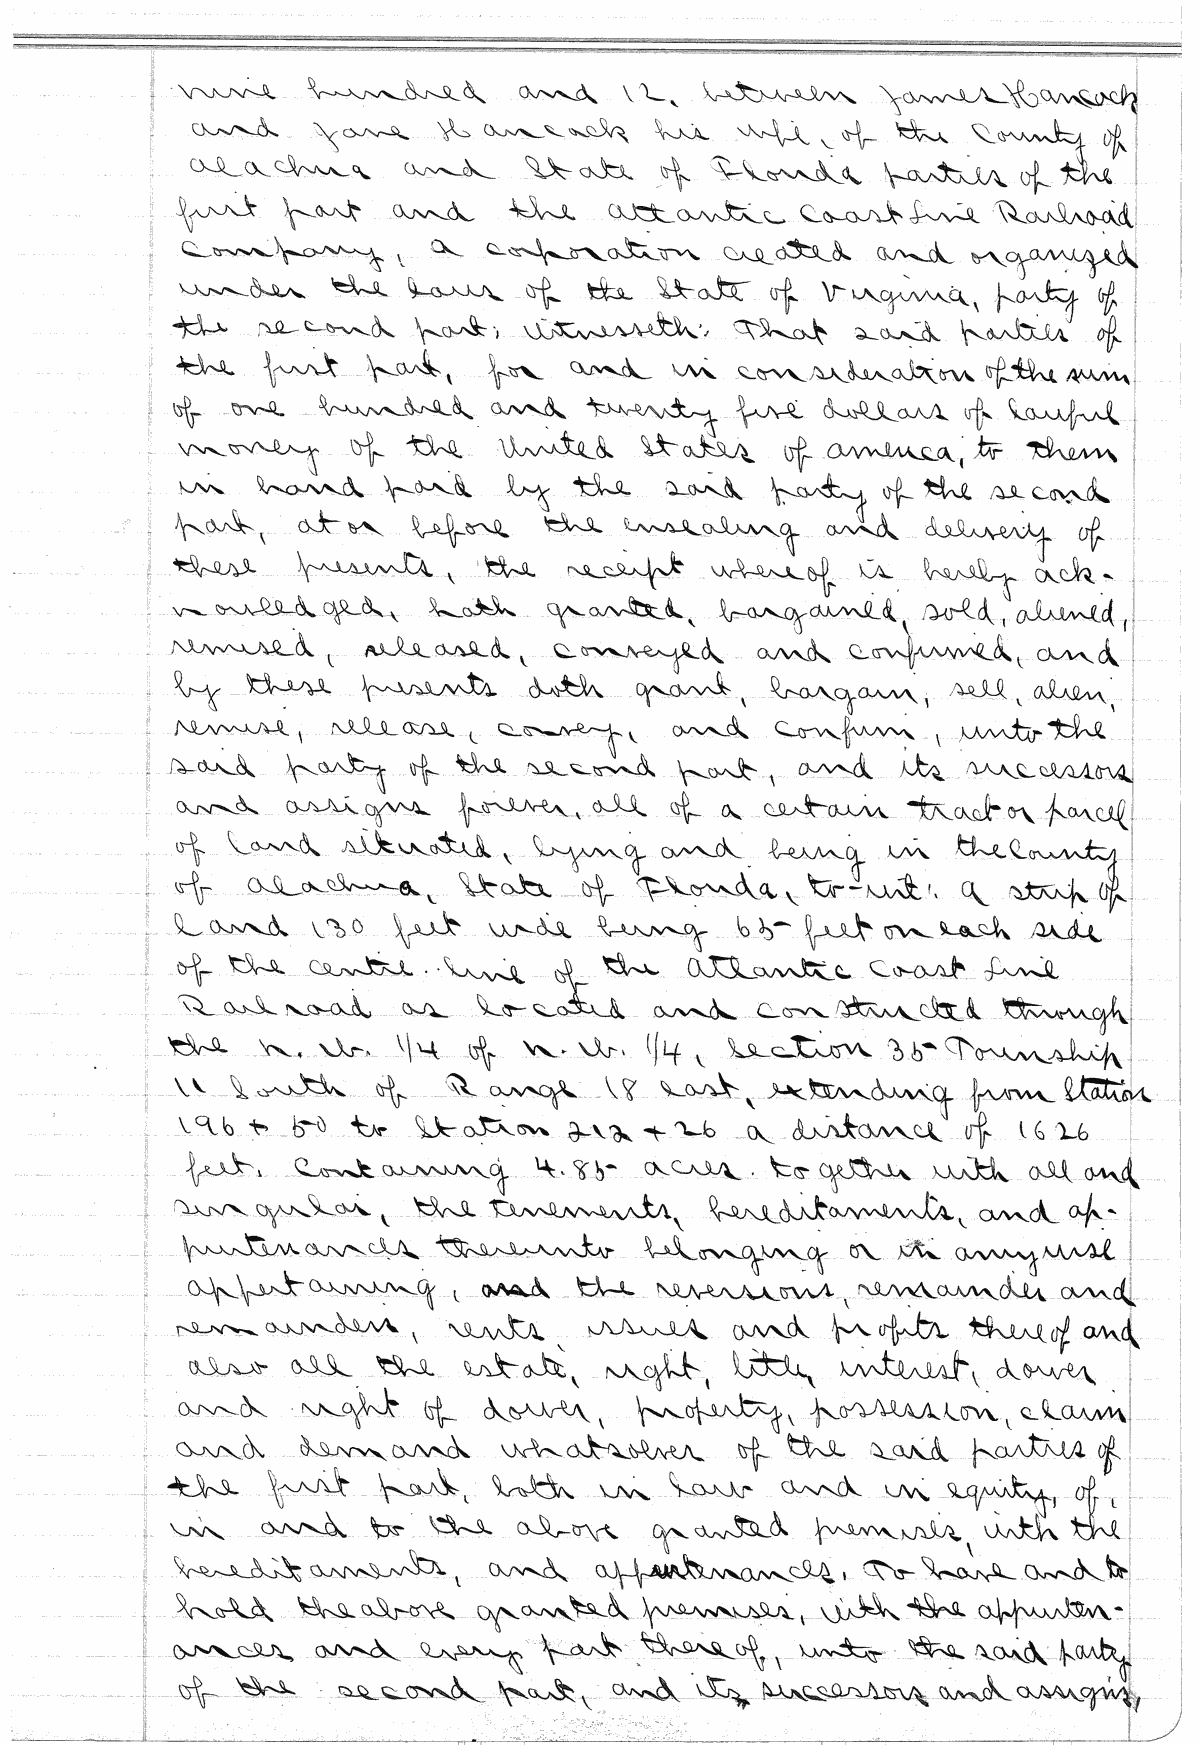 nine hundred and 12, between James Hancock
and Jane Hancock his wife, of the County of
Alachua and State of Florida parties of the
first part and the Atlantic Coast Line Railroad
Company, a corporation created and organized
under the laws of the State of Virginia, party of
the second part; Witnesseth: That said parties of
the first part, for and in consideration of the sum
of one hundred and twenty five dollars of lawful
money of the United States of America, to them
in hand paid by the said party of the second
part, at or before the ensealing and delivery of
these presents, the receipt whereof is hereby ack-
nowledged, hath granted, bargained, sold, aliened,
remised, released, conveyed and confirmed, and
by these presents doth grant, bargain, sell, alien,
remise, release, convey, and confirm, unto the
said party of the second part, and its successors
and assigns forever, all of a certain tract or parcel
of land situated, lying and being in the County
of Alachua, State of Florida, to-wit: A strip of
land 130 feet wide being 65 feet on each side
of the centre line of the Atlantic Coast Line
Railroad as located and constructed through
the N. W. 1/4 of N. W. 1/4, Section 35 Township
11 South of Range 18 east, extending from Station
196 + 50 to Station 212 + 26 a distance of 1626
feet. Containing 4.85 acres. together with all and
singular, the tenements, hereditaments, and ap-
purtenances thereunto belonging or in anywise
appertaining, and the reversions, remainder and
remainders, rents, issues and profits thereof and
also all the estate, right, title, interest, dower
and right of dower, property, possession, claim
and demand whatsoever of the said parties of
the first part, both in law and in equity, of,
in and to the above granted premises, with the
hereditaments, and appurtenances. To have and to
hold the above granted premises, with the appurten-
ances and every part thereof, unto the said party
of the second part, and its successors and assigns,